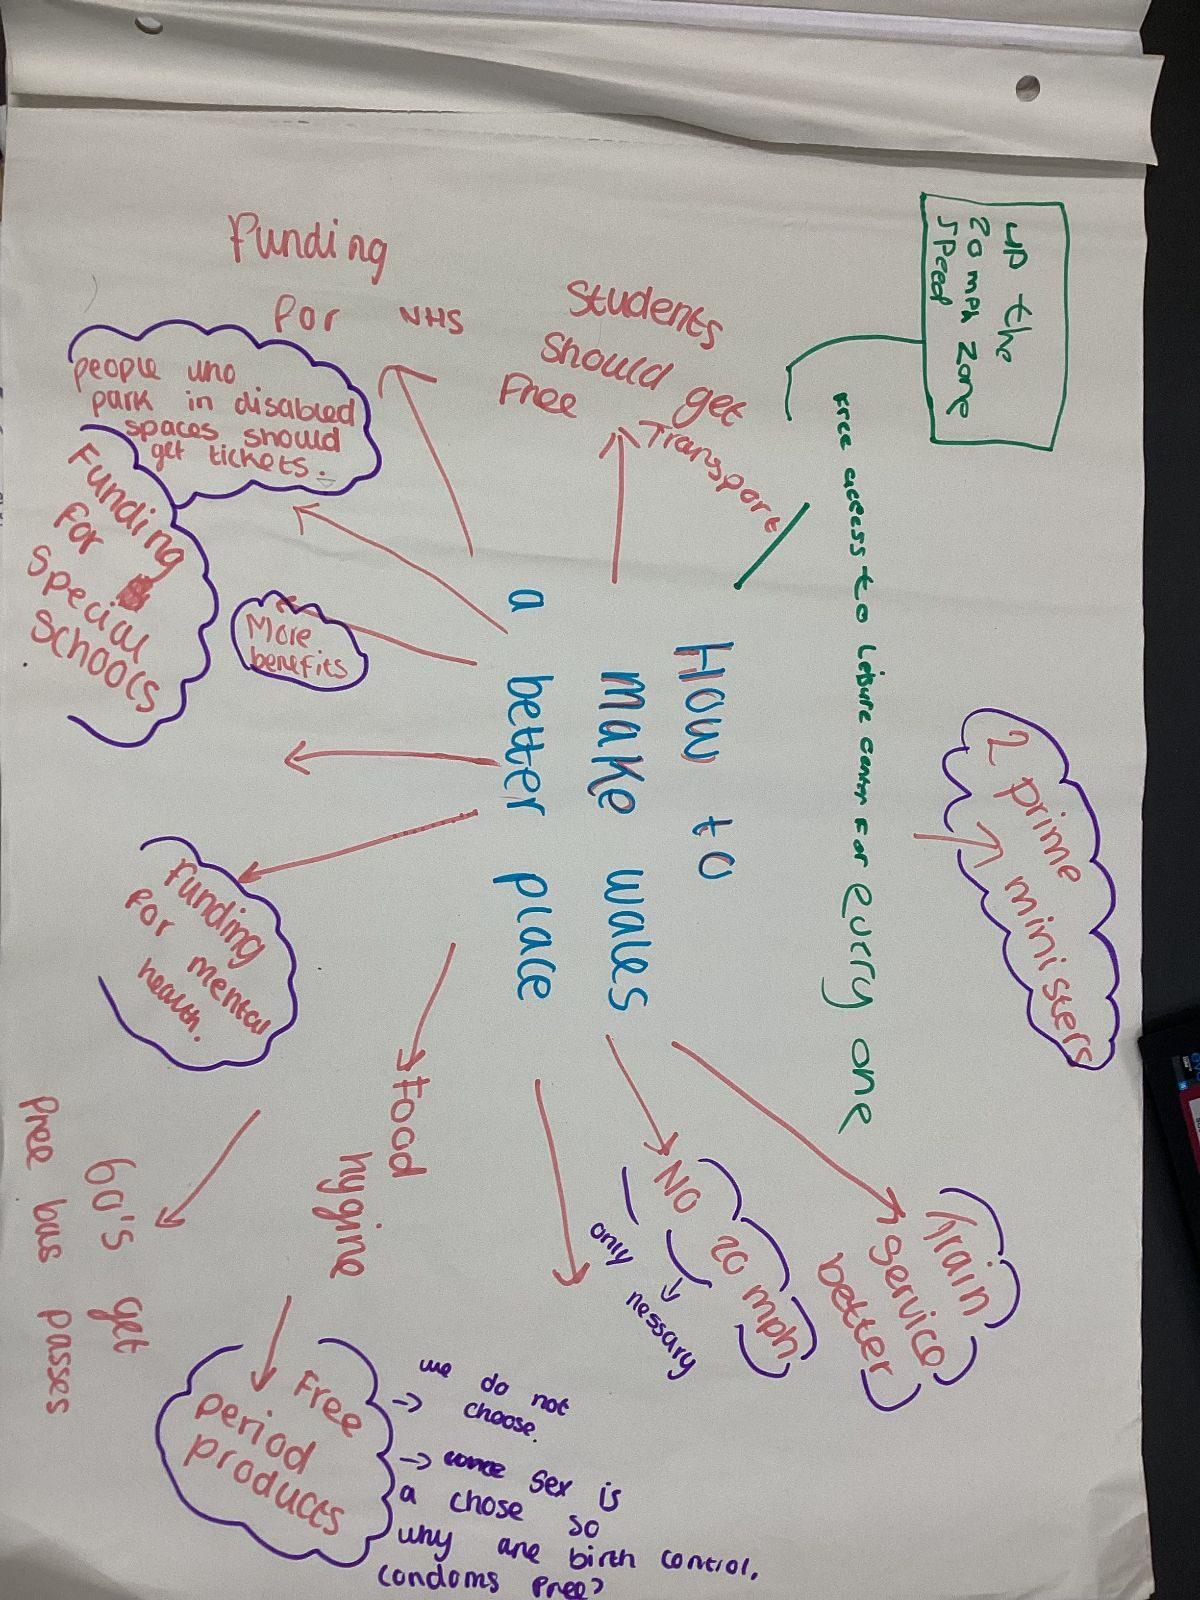 How to
make wales
a better place
up the
20 mph zone
speed
Free access to Leisure center For Every one
2 prime
ministers
Train
service
better
NO 20 mph
only nessary
Students
should get
Free Transport
Funding
For NHS
people who
park in disabled
spaces should
get tickets.
Funding
for
special
schools
More
benefits
Funding
for mental
health.
Food
hygine
60's get
Free bus passes
Free
period
products
we do not
choose.
sex is
a chose so
why are birth control,
condoms free?